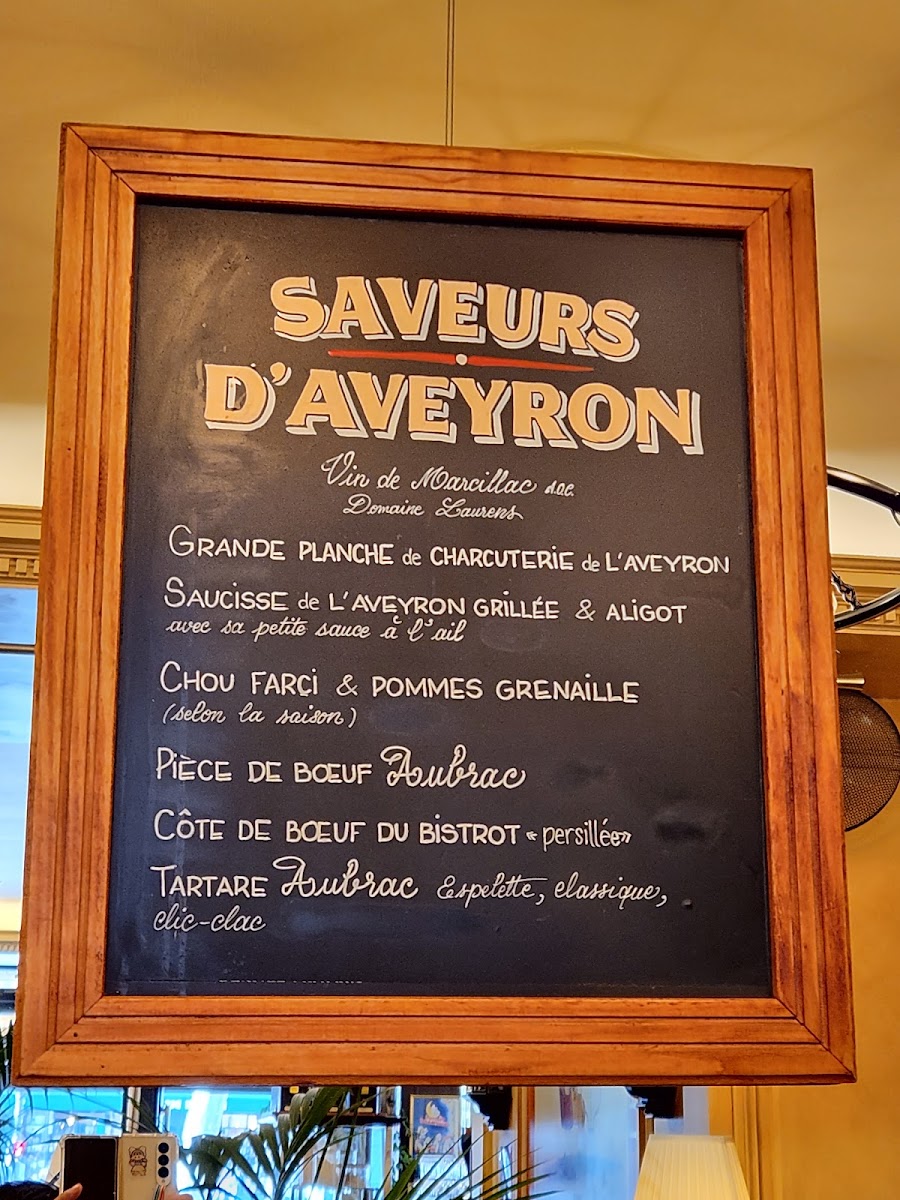 SAVEURS
D'AVEYRON
Vin de Marcillac A.O.C.
Domaine Laurens
GRANDE PLANCHE de CHARCUTERIE de L'AVEYRON
SAUCISSE de L'AVEYRON GRILLÉE & ALIGOT
avec sa petite sauce à l'ail
CHOU FARÇI & POMMES GRENAILLE
(selon la saison)
PIÈCE DE BŒUF Aubrac
CÔTE DE BŒUF DU BISTROT «persillée»
TARTARE Aubrac Espelette, classique,
clic-clac